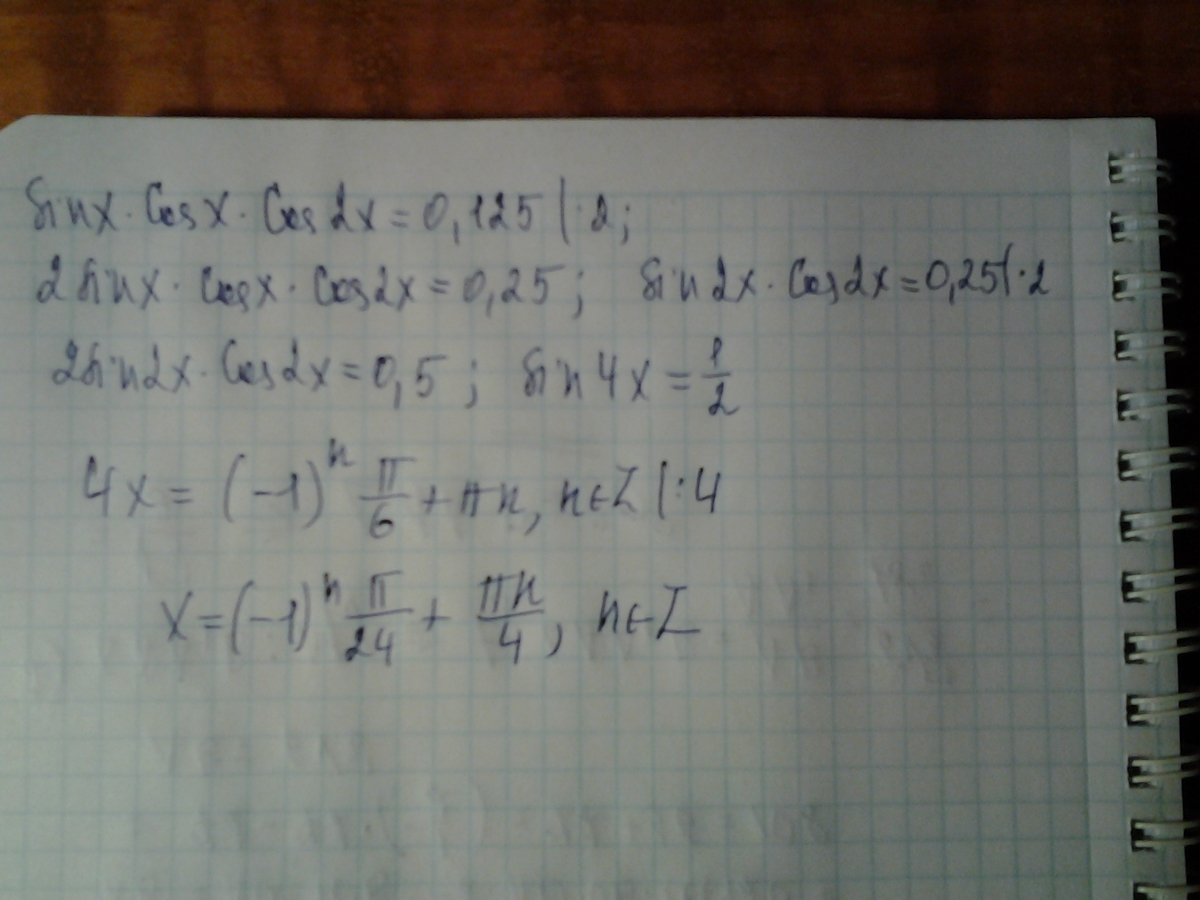 sinx · cosx · cos2x = 0,125 | ·2;
2sinx · cosx · cos2x = 0,25; sin2x · cos2x = 0,25 | ·2
2sin2x · cos2x = 0,5; sin4x = 1/2
4x = (-1)^n π/6 + πn, n∈Z | :4
x = (-1)^n π/24 + πn/4, n∈Z